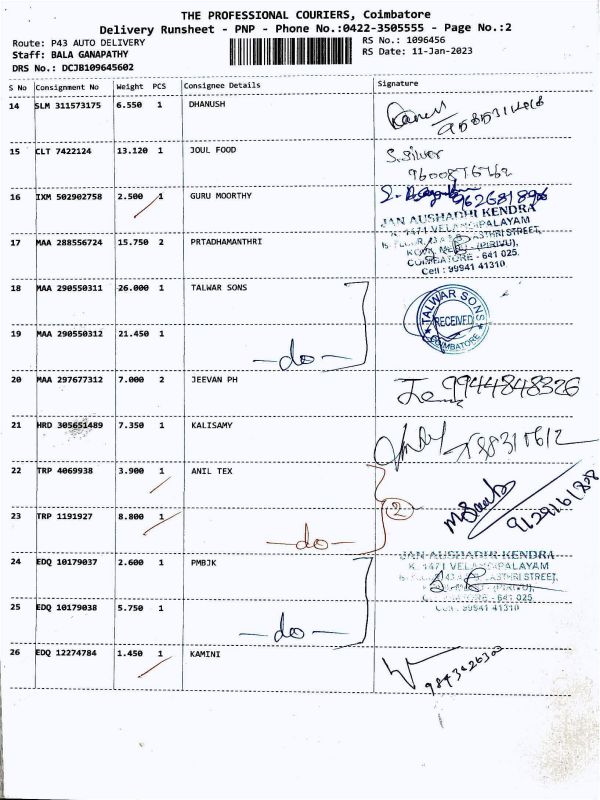 THE PROFESSIONAL COURIERS, Coimbatore
Delivery Runsheet - PNP - Phone No.:0422-3505555 - Page No.:2
Route: P43 AUTO DELIVERY RS No.: 1096456
Staff: BALA GANAPATHY RS Date: 11-Jan-2023
DRS No.: DCJB109645602
S No Consignment No Weight PCS Consignee Details Signature
14 SLM 311573175 6.550 1 DHANUSH
15 CLT 7422124 13.120 1 JOUL FOOD S.Silver
9600876762
16 IXM 502902758 2.500 1 GURU MOORTHY
JAN AUSHADHI KENDRA
17 MAA 288556724 15.750 2 PRTADHAMANTHRI
COIMBATORE - 641 025.
Cell : 99941 41310
18 MAA 290550311 26.000 1 TALWAR SONS
TALWAR SONS
RECEIVED
COIMBATORE
19 MAA 290550312 21.450 1
-do-
20 MAA 297677312 7.000 2 JEEVAN PH 9944848326
21 HRD 305651489 7.350 1 KALISAMY
22 TRP 4069938 3.900 1 ANIL TEX
2
23 TRP 1191927 8.800 1
-do-
JAN AUSHADHI KENDRA
24 EDQ 10179037 2.600 1 PMBJK
25 EDQ 10179038 5.750 1
-do-
26 EDQ 12274784 1.450 1 KAMINI